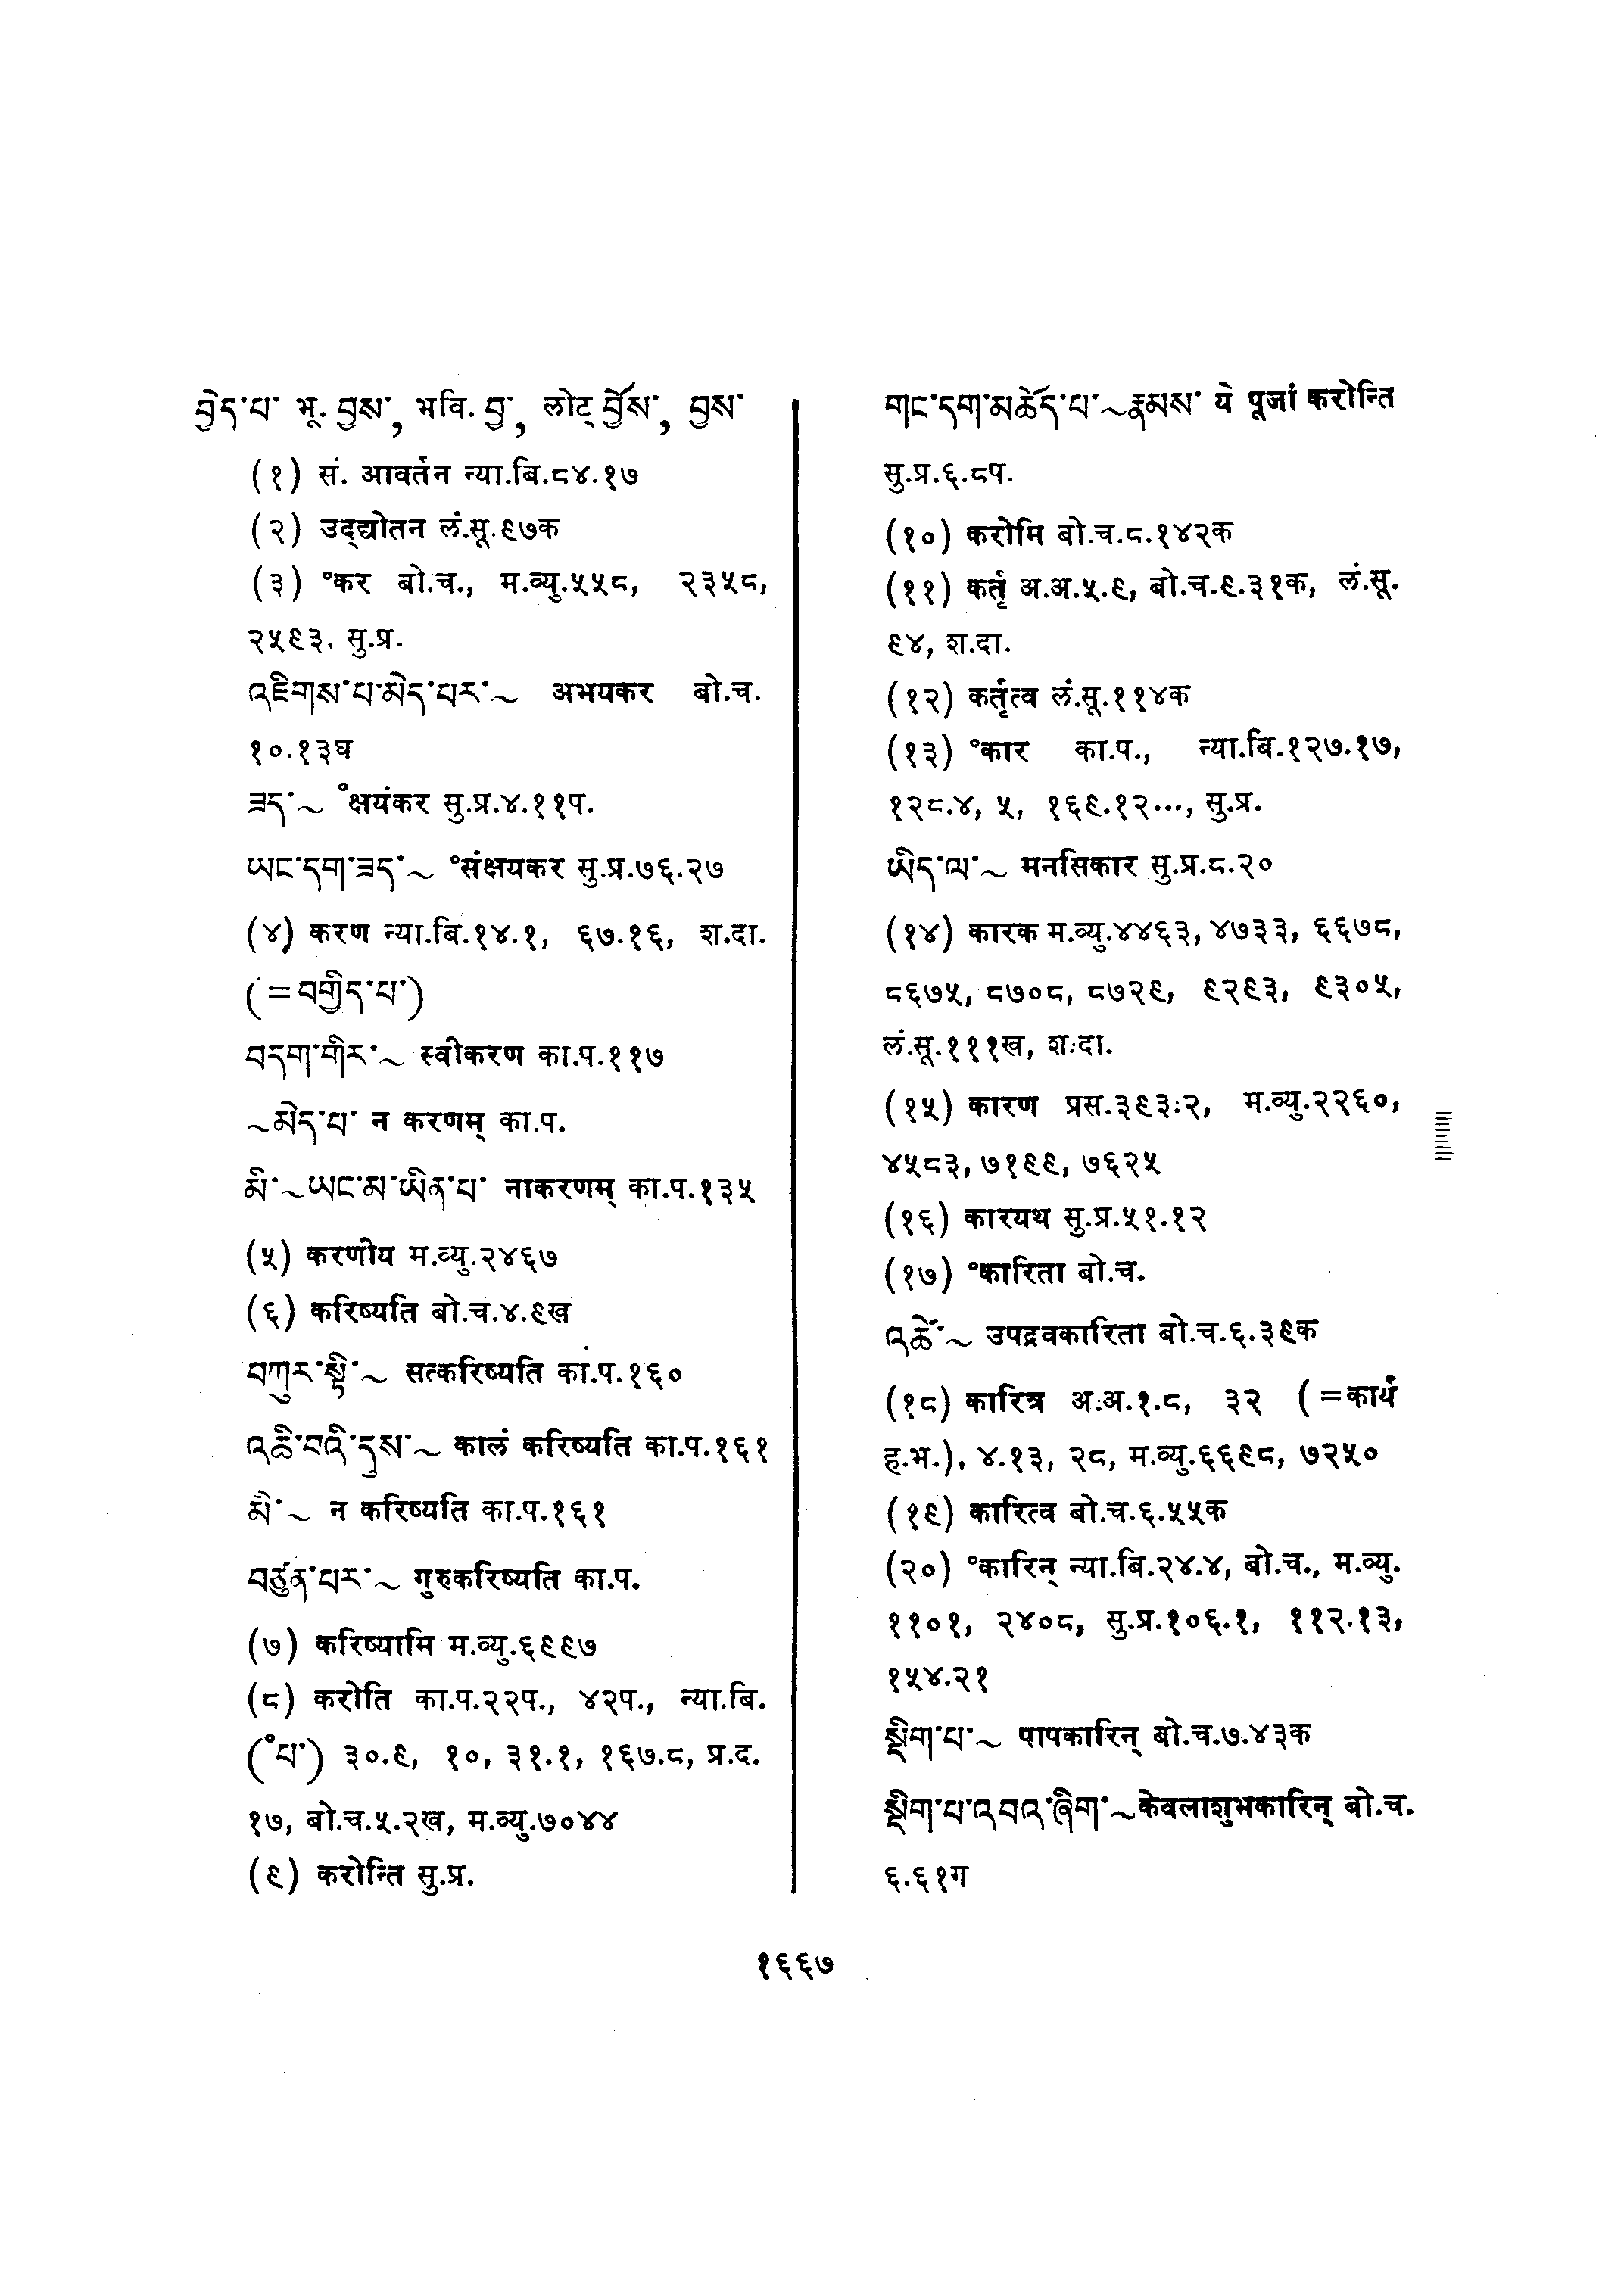 བྱེད་པ་ भू. བྱས་, भवि. བྱ་, लोट् བྱོས་, བྱས་
(१) सं. आवर्तन न्या.बि.८४.१७
(२) उद्द्योतन लं.सू.९७क
(३) °कर बो.च., म.व्यु.५५८, २३५८,
२५९३, सु.प्र.
འཇིགས་པ་མེད་པར་~ अभयकर बो.च.
१०.१३घ
ཟད་~ °क्षयंकर सु.प्र.४.११प.
ཡང་དག་ཟད་~ °संक्षयकर सु.प्र.७६.२७
(४) करण न्या.बि.१४.१, ६७.१६, श.दा.
(=བགྱིད་པ་)
བདག་གིར་~ स्वीकरण का.प.११७
~མེད་པ་ न करणम् का.प.
མི་~ཡང་མ་ཡིན་པ་ नाकरणम् का.प.१३५
(५) करणीय म.व्यु.२४६७
(६) करिष्यति बो.च.४.९ख
བཀུར་སྟི་~ सत्करिष्यति का.प.१६०
འཆི་བའི་དུས་~ कालं करिष्यति का.प.१६१
མི་~ न करिष्यति का.प.१६१
བཙུན་པར་~ गुरुकरिष्यति का.प.
(७) करिष्यामि म.व्यु.६९९७
(८) करोति का.प.२२प., ४२प., न्या.बि.
(°པ་) ३०.९, १०, ३१.१, १६७.८, प्र.द.
१७, बो.च.५.२ख, म.व्यु.७०४४
(९) करोन्ति सु.प्र.
གང་དག་མཆོད་པ་~རྣམས་ ये पूजां करोन्ति
सु.प्र.६.८प.
(१०) करोमि बो.च.८.१४२क
(११) कर्तृ अ.अ.५.९, बो.च.९.३१क, लं.सू.
९४, श.दा.
(१२) कर्तृत्व लं.सू.११४क
(१३) °कार का.प., न्या.बि.१२७.१७,
१२८.४, ५, १६९.१२..., सु.प्र.
ཡིད་ལ་~ मनसिकार सु.प्र.८.२०
(१४) कारक म.व्यु.४४६३, ४७३३, ६६७८,
८६७५, ८७०८, ८७२९, ९२९३, ९३०५,
लं.सू.१११ख, श.दा.
(१५) कारण प्रस.३९३.२, म.व्यु.२२६०,
४५८३, ७१९९, ७६२५
(१६) कारयथ सु.प्र.५१.१२
(१७) °कारिता बो.च.
འཚེ་~ उपद्रवकारिता बो.च.६.३९क
(१८) कारित्र अ.अ.१.८, ३२ (=कार्य
ह.भ.), ४.१३, २८, म.व्यु.६६९८, ७२५०
(१९) कारित्व बो.च.६.५५क
(२०) °कारिन् न्या.बि.२४.४, बो.च., म.व्यु.
११०१, २४०८, सु.प्र.१०६.१, ११२.१३,
१५४.२१
སྡིག་པ་~ पापकारिन् बो.च.७.४३क
སྡིག་པ་འབའ་ཞིག་~केवलाशुभकारिन् बो.च.
६.६१ग
१६६७